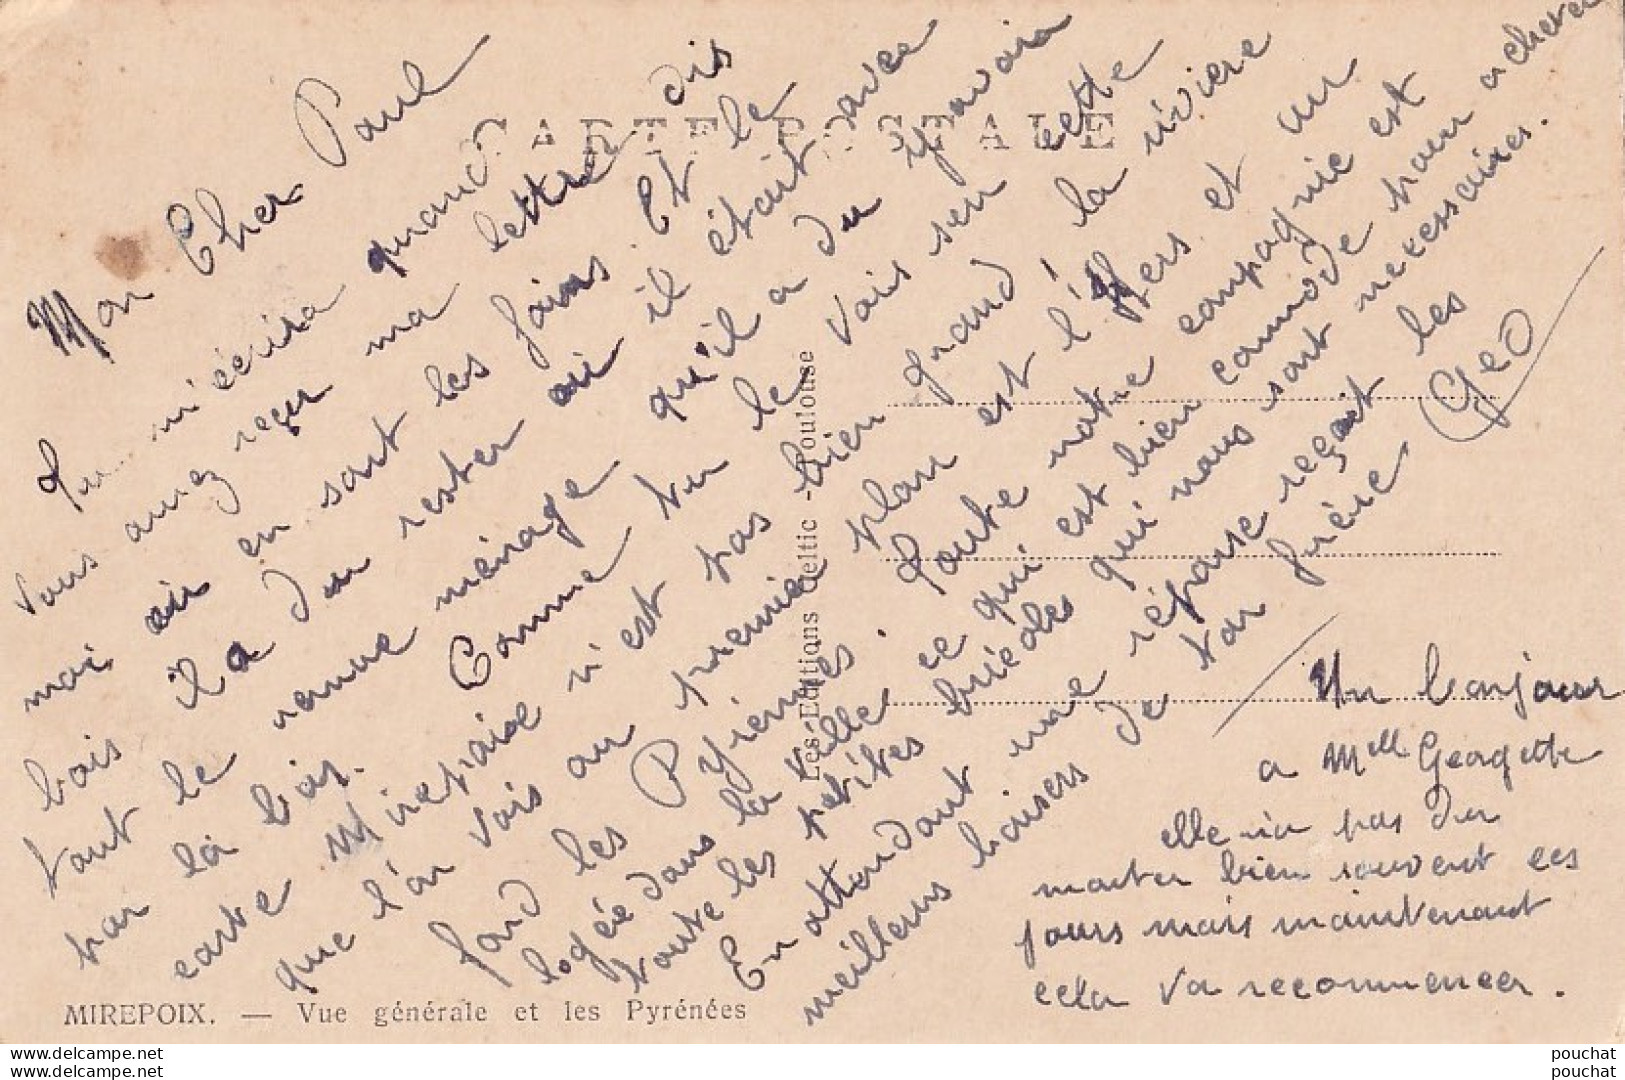 CARTE POSTALE
Mon Cher Paul
Tu m'écrira quand
vous aurez reçu ma lettre dis
moi où en sont les foins. Et le
bois il a du rester où il était avec
tout le remue ménage qu'il a du y avoir
par là bas. Comme tu le vois sur cette
carte Mirepoix n'est pas bien grand, la rivière
que l'on vois au premier plan est l'Hers et au
fond les Pyrénées. Toute notre compagnie est
logée dans la ville ce qui est bien commode pour acheter
toute les petites bricoles qui nous sont necessaires.
En attendant une réponse reçoit les
meilleurs baisers de ton frère Geo
Un bonjour
a Mell Georgette
elle n'a pas du
monter bien souvent ces
jours mais maintenant
cela va recommencer.
Les Editions Celtic - Toulouse
MIREPOIX. — Vue générale et les Pyrénées
www.delcampe.net
www.delcampe.net
pouchat
pouchat